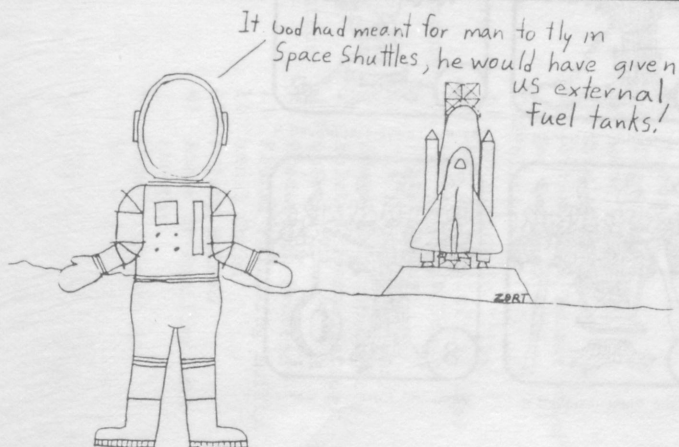 If God had meant for man to fly in
Space Shuttles, he would have given
us external
fuel tanks!
ZORT